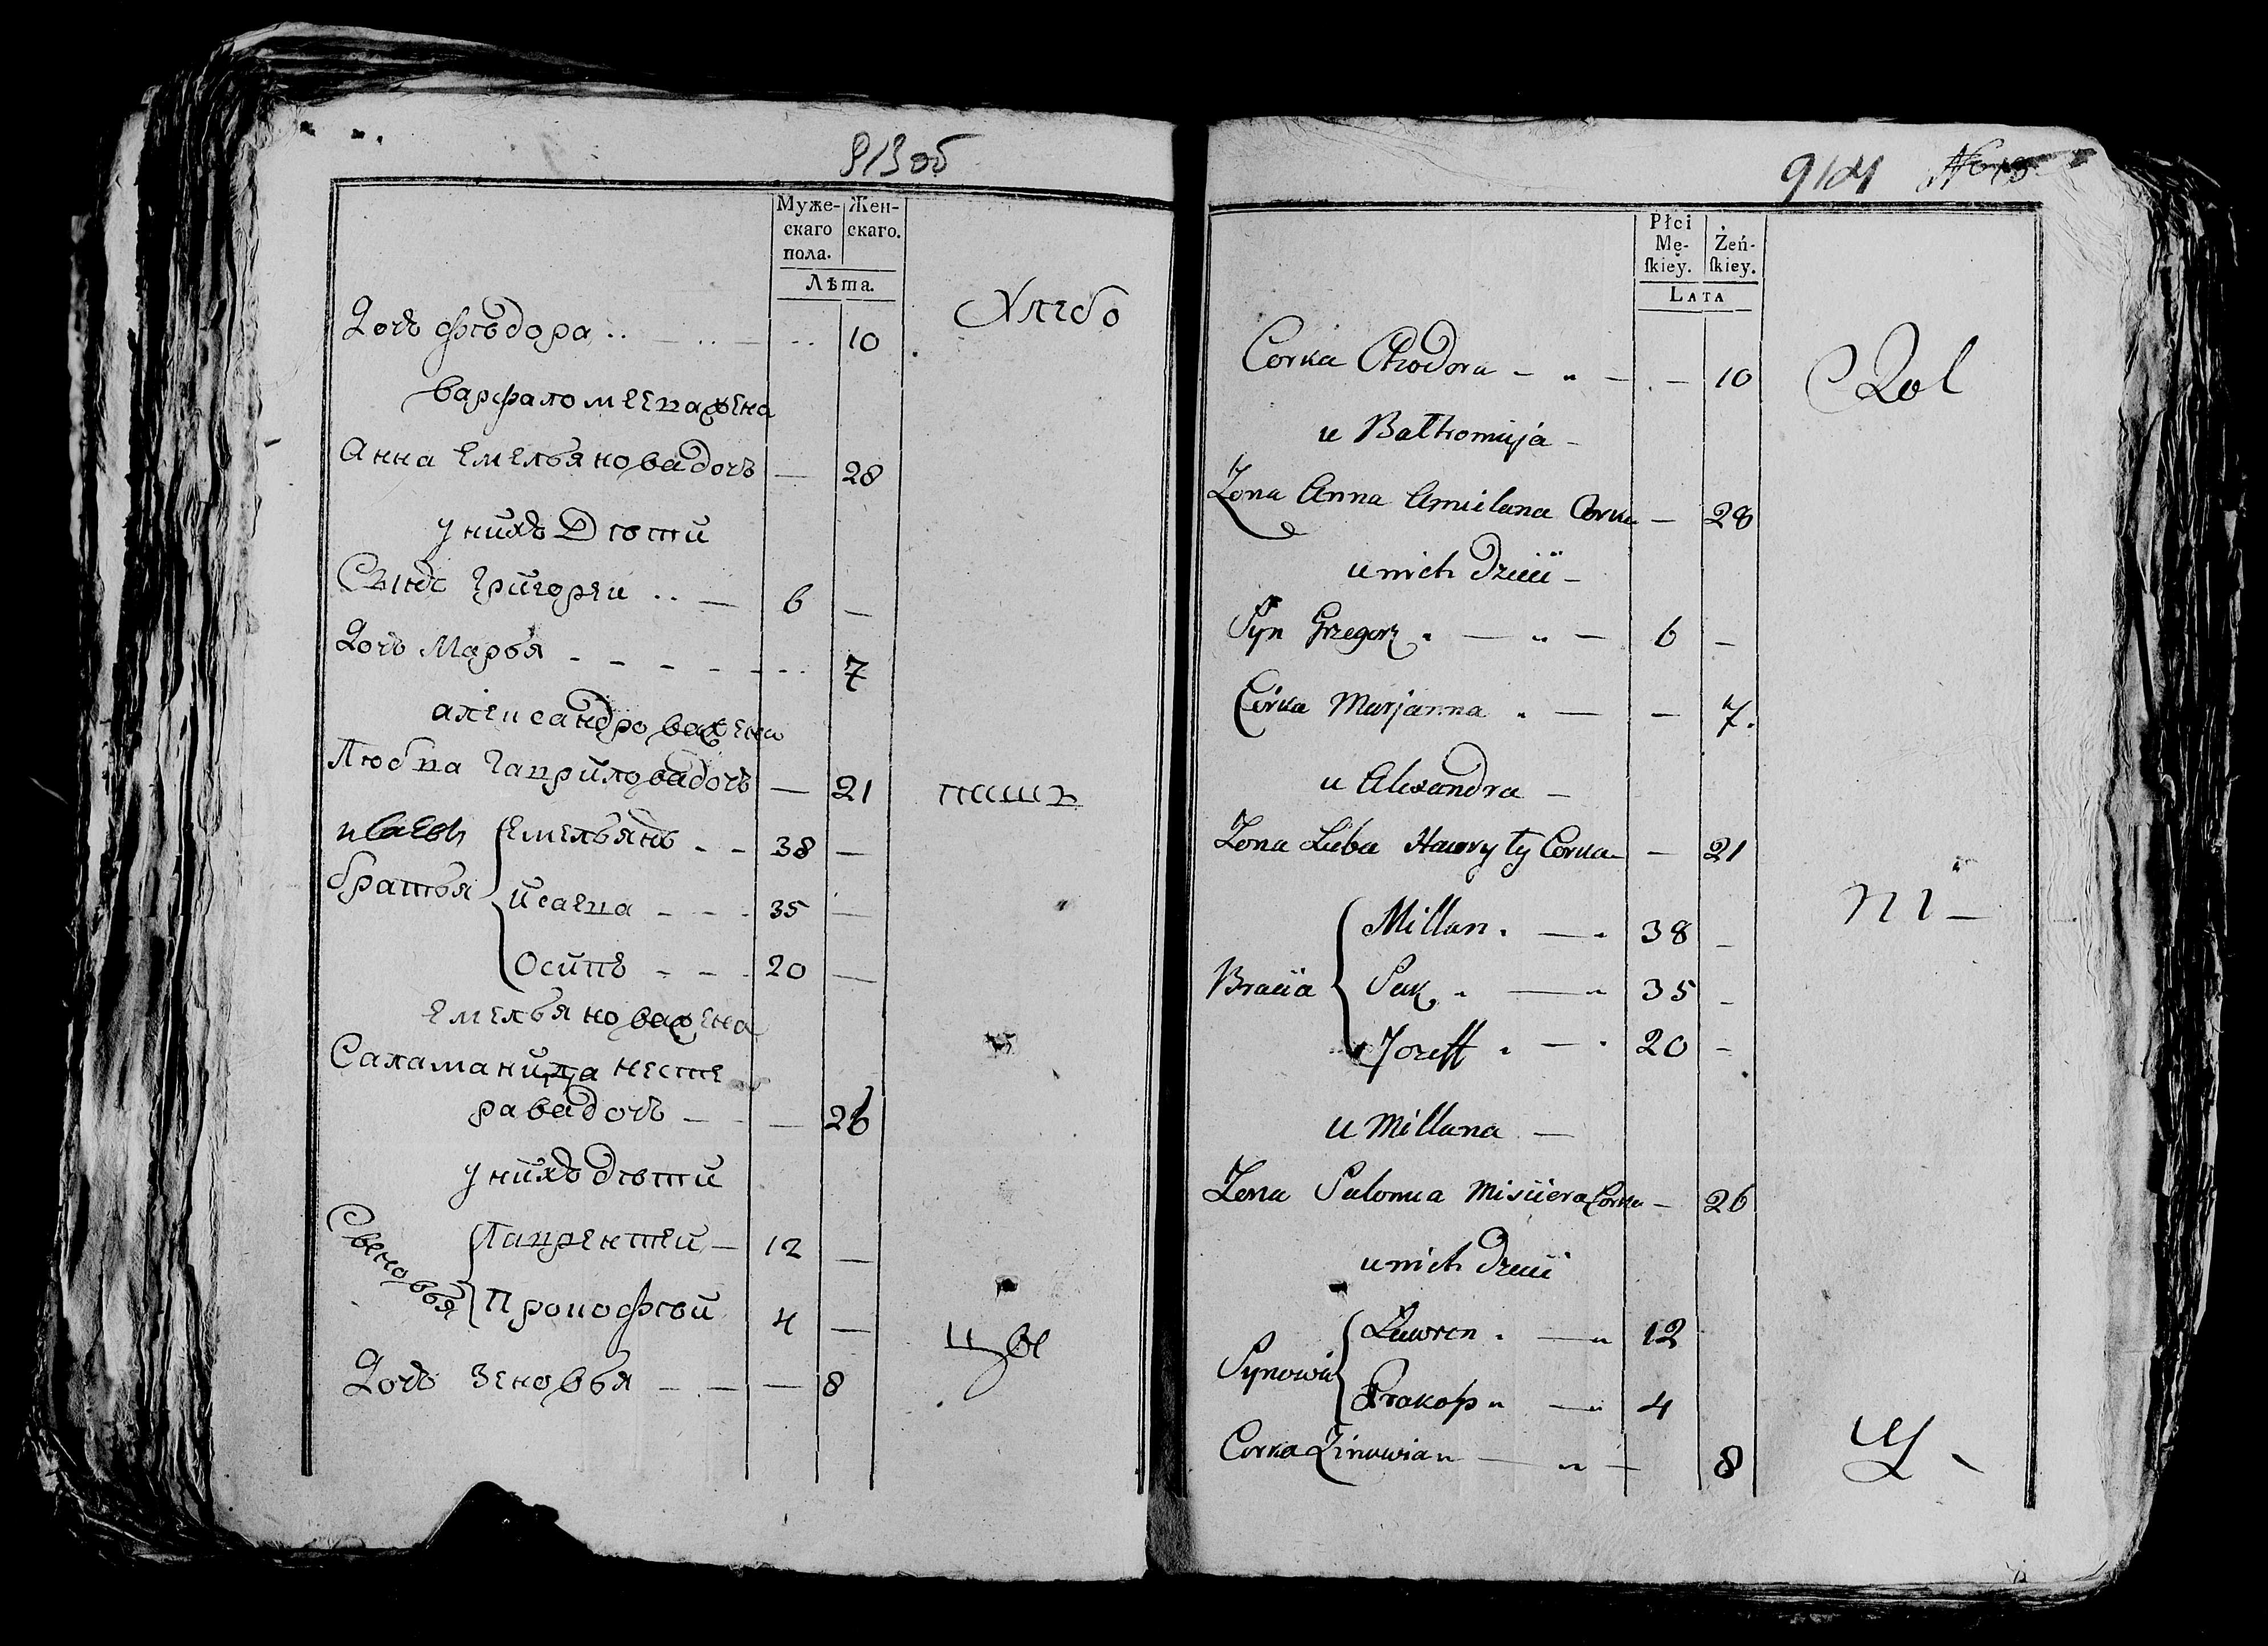 913об
Муже-
скаго
пола.
Жен-
скаго.
Лѣта.
Дочь Фѣдора 10
Хлебо
Варфаломеева жена
Анна Емельянова дочь — 28
у нихъ Дѣти
Сынъ Григореи 6 —
Дочь Марья 7
александрова жена
Любва Гаврилова дочь — 21
пашъ
братья
Емельянъ 38 —
Исаева 35 —
Осипъ 20 —
Емельянова жена
Саламанида несте
рава дочь — 26
у нихъ дѣти
Сыновья
Лаврентеи 12 —
Прокофѣй 4 —
цы
Дочь Зеновья — 8
914
Płci
Mę-
ſkiey.
Żeń-
ſkiey.
LATA
Corka Chodora 10
Rol
u Bałtromieja
Żona Anna Amielana Corka — 28
u nich dzieci
Syn Grzegorz 6 —
Córka Marjanna — 7.
u Alexandra
Żona Luba Hawryły Corka — 21
ni
Bracia
Millan 38 —
35 —
Jozeff 20 —
u Millana
Żona Salomea Corka — 26
u nich dzieci
Synowie
Lawren 12
Prakop 4
Corka Zinowia 8
cy